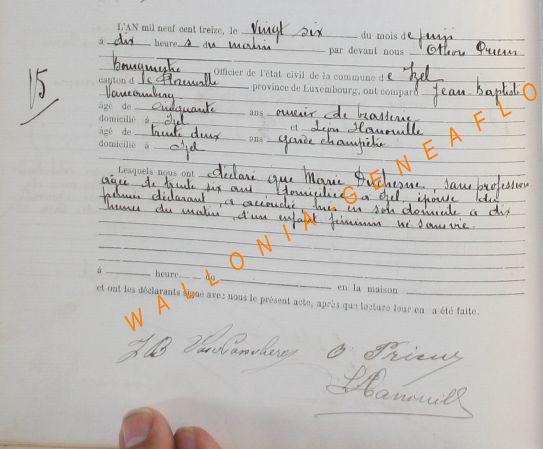 L'AN mil neuf cent treize, le vingt six du mois de juin
à dix heures du matin par devant nous Othon Prieur
Bourgmestre Officier de l'état civil de la commune de Izel
canton de Florenville province de Luxembourg, ont comparu Jean Baptiste
15
âgé de cinquante ans ouvrier de brasserie
domicilié à Izel et Léon Hanouille
âgé de trente deux ans garde champêtre
domicilié à Izel
Lesquels nous ont déclaré que Marie Duchesne, sans profession
âgée de trente six ans domiciliée à Izel, épouse du
premier déclarant, a accouché hier en son domicile à dix
heures du matin, d'un enfant féminin né sans vie.
à heure du en la maison
et ont les déclarants signé avec nous le présent acte, après que lecture leur en a été faite.
WALLONIA GENEAFLO
J B O Prieur
L Hanouille